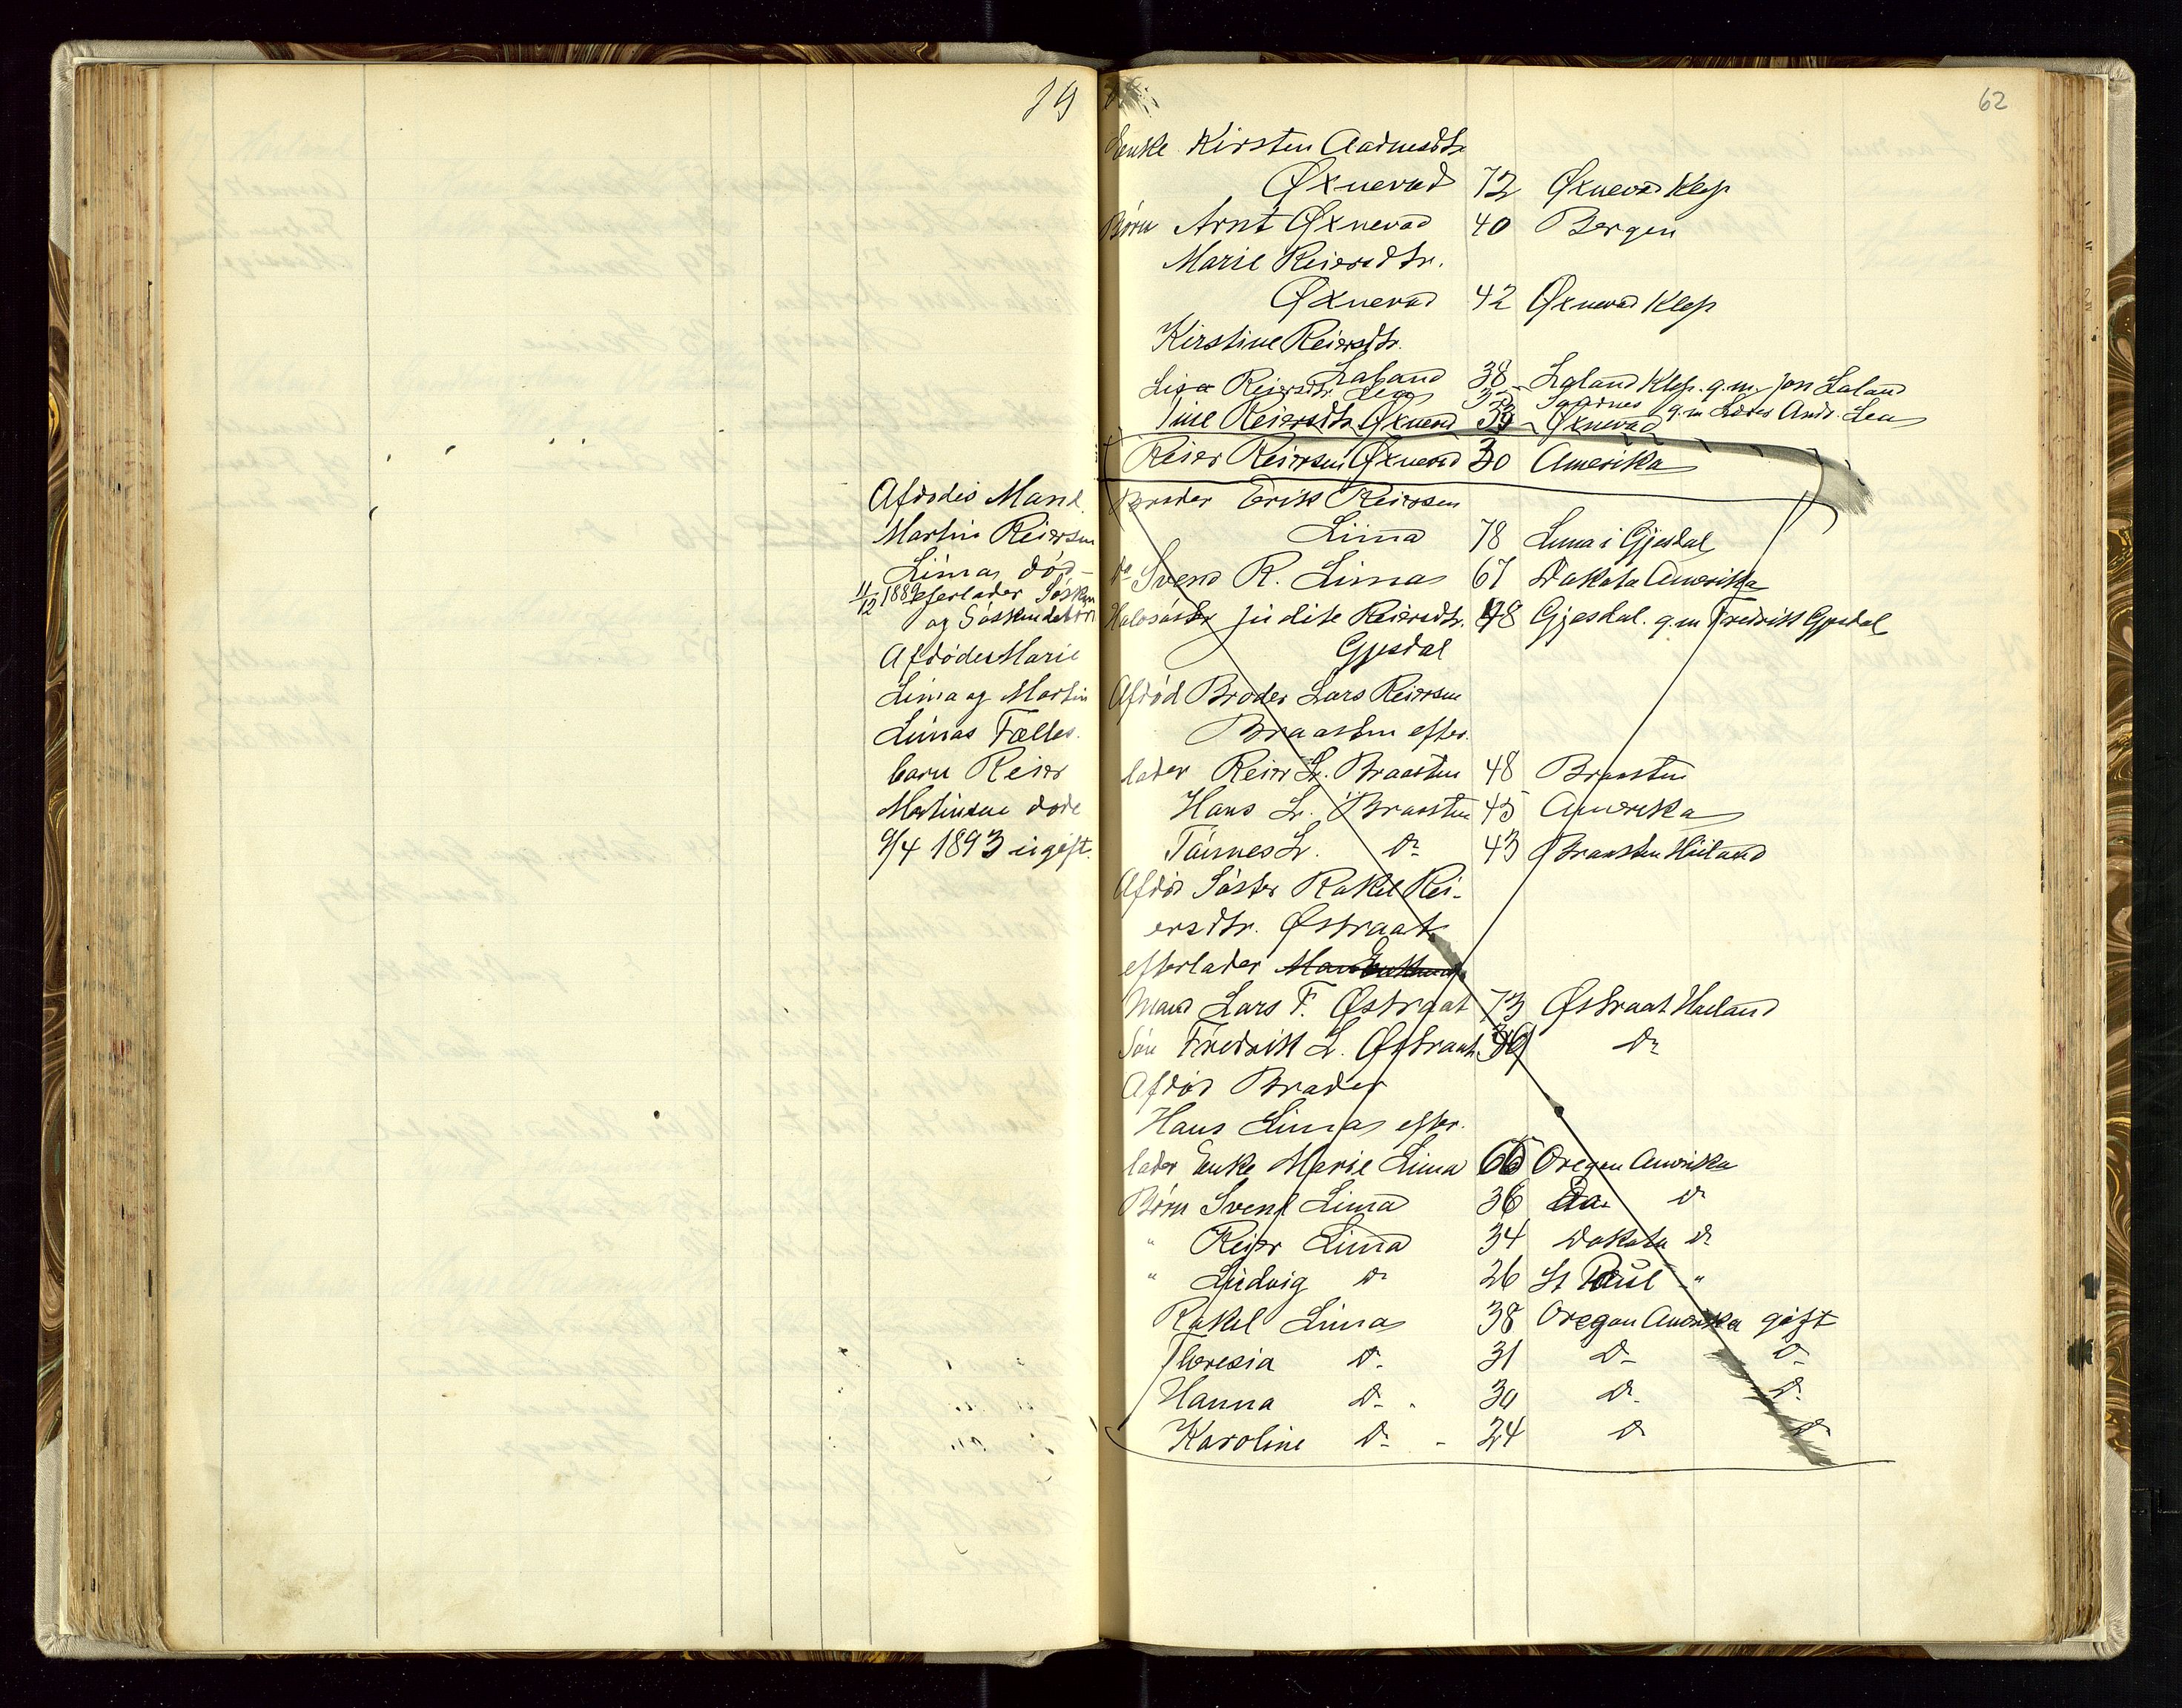 19
Afdödes Mand
Martin Reiersen
Limas död
11/12 1889 efterlader Søsken
og Søskendebörn
Afdödes Marie
Lima og Martin
Limas Fælles
barn Reier
Martinsen døde
9/4 1893 ugift.
62
Enke Kirsten Aadnesdtr
Øxnevad 72 Øxnevad Klep
Børn Arnt Øxnevad 40 Bergen
Marie Reiersdtr.
Øxnevad 42 Øxnevad Klep
Kirstine Reiersdtr.
Laland 38 Laland Klep. g.m. Jon Laland
Lisa Reiersdtr. Lea Sandnes g.m. Andr. Lea
Tine Reiersdtr. Øxnevad 33 Øxnevad
Reier Reiersen Øxnevad 30 Amerika
Broder Erik Reiersen
Lima 78 Lima i Gjesdal
do Svend R. Lima 67 Dakota Amerika
Halvsøster Judite Reiersdtr. 48 Gjesdal. g.m. Fredrik Gjesdal
Gjesdal
Afdød Broder Lars Reiersen
Braasten efter-
lader Reier L. Braasten 48 Braasten
Hans L. Braasten 45 Amerika
Tønnes L. do 43 Braasten Høiland
Afdød Søster Rakel Rei-
ersdtr. Østraat
efterlader
Mand Lars F. Østraat 73 Østraat Høiland
Søn Fredrik L. Østraat 39 do
Afdød Broder
Hans Lima efter-
lader Enke Marie Lima 66 Oregon Amerika
Børn Svend Lima 36 da. do
" Reier Lima 34 Dakota do
" Ludvig do 26 St Paul "
Rakel Lima 38 Oregon Amerika gift
Theresia do 31 do do
Hanna do 30 do do
Karoline do 24 do do